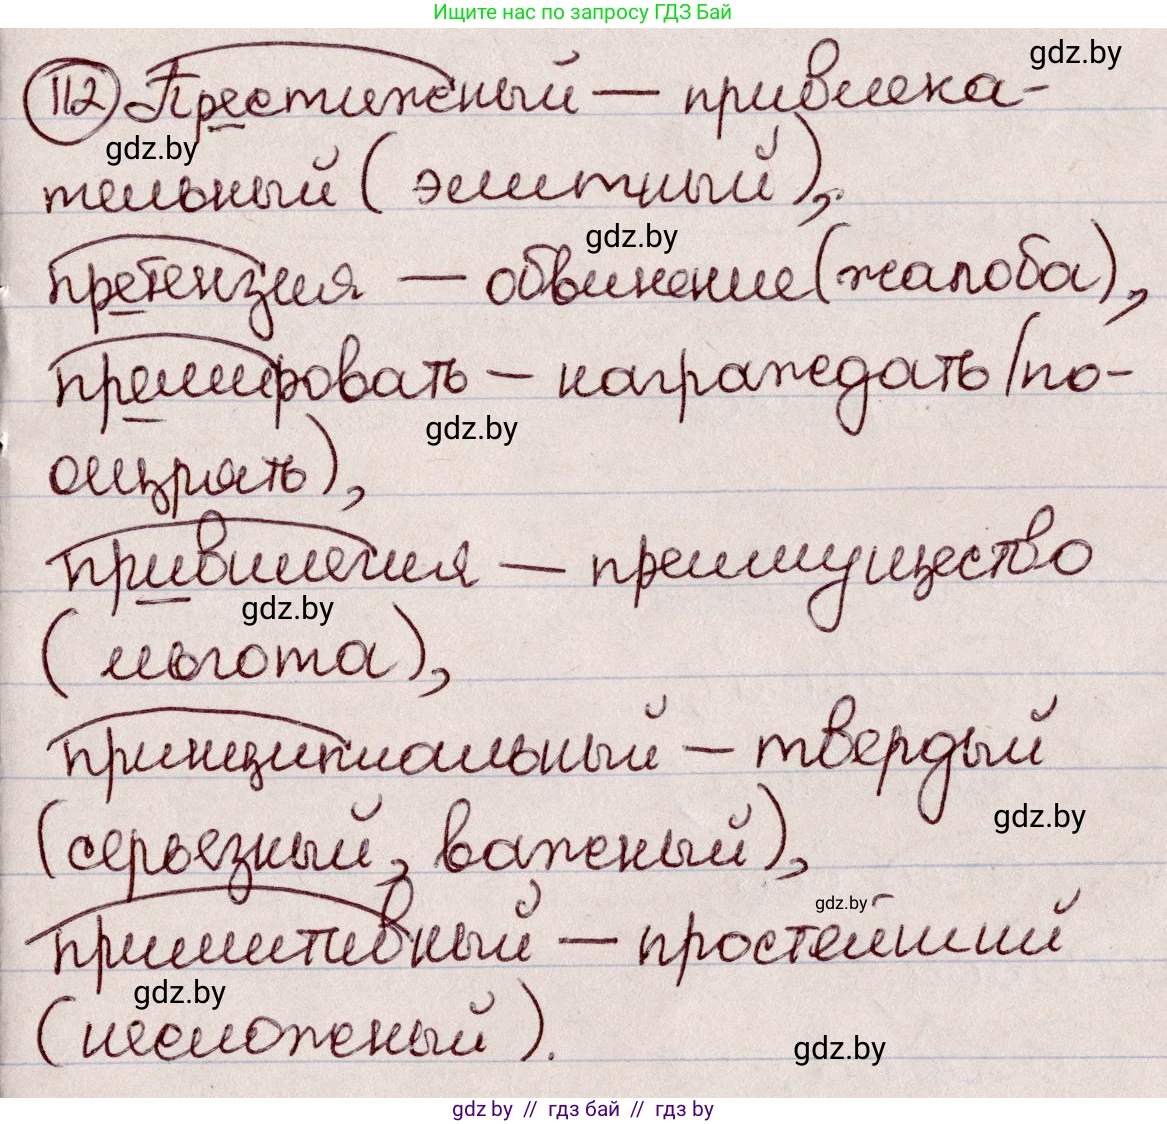 Ищите нас по запросу ГДЗ Бай
gdz.by
112 Престижный — привлека-
gdz.by
тельный (элитный),
gdz.by
претензия — обвинение (жалоба),
премировать — награждать (по-
gdz.by
ощрять),
привилегия — преимущество
gdz.by
(льгота),
принципиальный — твердый
gdz.by
(серьезный, важный),
gdz.by
примитивный — простейший
gdz.by
(несложный).
gdz.by
gdz.by // гдз бай // гдз by